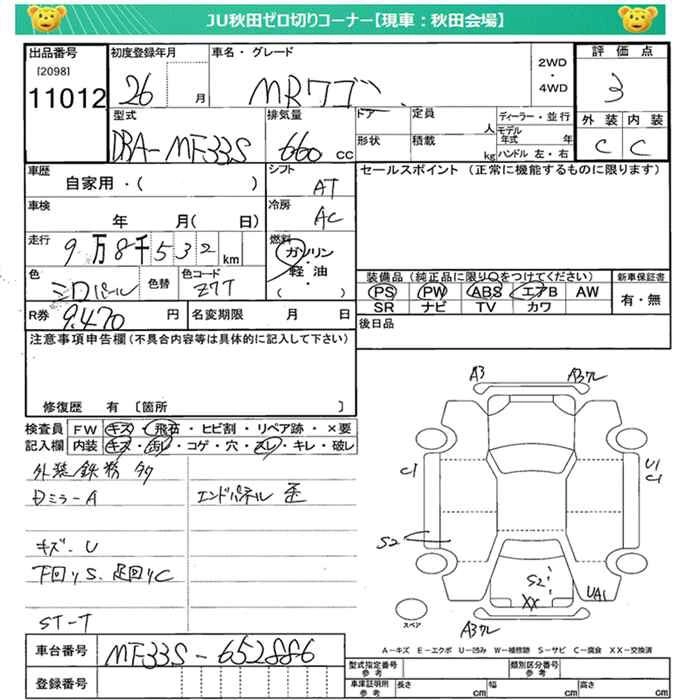 JU秋田ゼロ切りコーナー【現車：秋田会場】
出品番号 初度登録年月 車名・グレード 2WD ・ 4WD 評価点
[2098]
11012 26 月 MRワゴン 3
型式 排気量 ドア 定員 人 ディーラー・並行 外装 内装
DBA-MF33S 660 cc 形状 積載 kg モデル年式 年 ハンドル 左・右 C C
車歴 自家用・( ) シフト AT セールスポイント (正常に機能するものに限ります)
車検 年 月( 日) 冷房 AC
走行 9万8千532km 燃料 ガソリン・軽油・( )
色 シロパール 色替 色コード Z7T
装備品 (純正品に限り○をつけてください) 新車保証書
PS PW ABS エアB AW 有・無
SR ナビ TV カワ
R券 9,470 円 名変期限 月 日 後日品
注意事項申告欄(不具合内容等は具体的に記入して下さい)
修復歴 有 [箇所 ]
検査員 FW キズ・飛石・ヒビ割・リペア跡・×要
記入欄 内装 キズ・汚レ・コゲ・穴・スレ・キレ・破レ
外装鉄粉多
Dミラー A エンドパネル 歪
キズ.U
下回りS. 足回りC
ST-T
A3 A3ワレ
C1 U1
C1
S2
S2
XX UA1
A3ワレ
スペア
A-キズ E-エクボ U-凹み W-補修跡 S-サビ C-腐食 XX-交換済
車台番号 MF33S-652886
登録番号
型式指定番号 参考 類別区分番号 参考
車庫証明用 参考 長さ cm 幅 cm 高さ cm